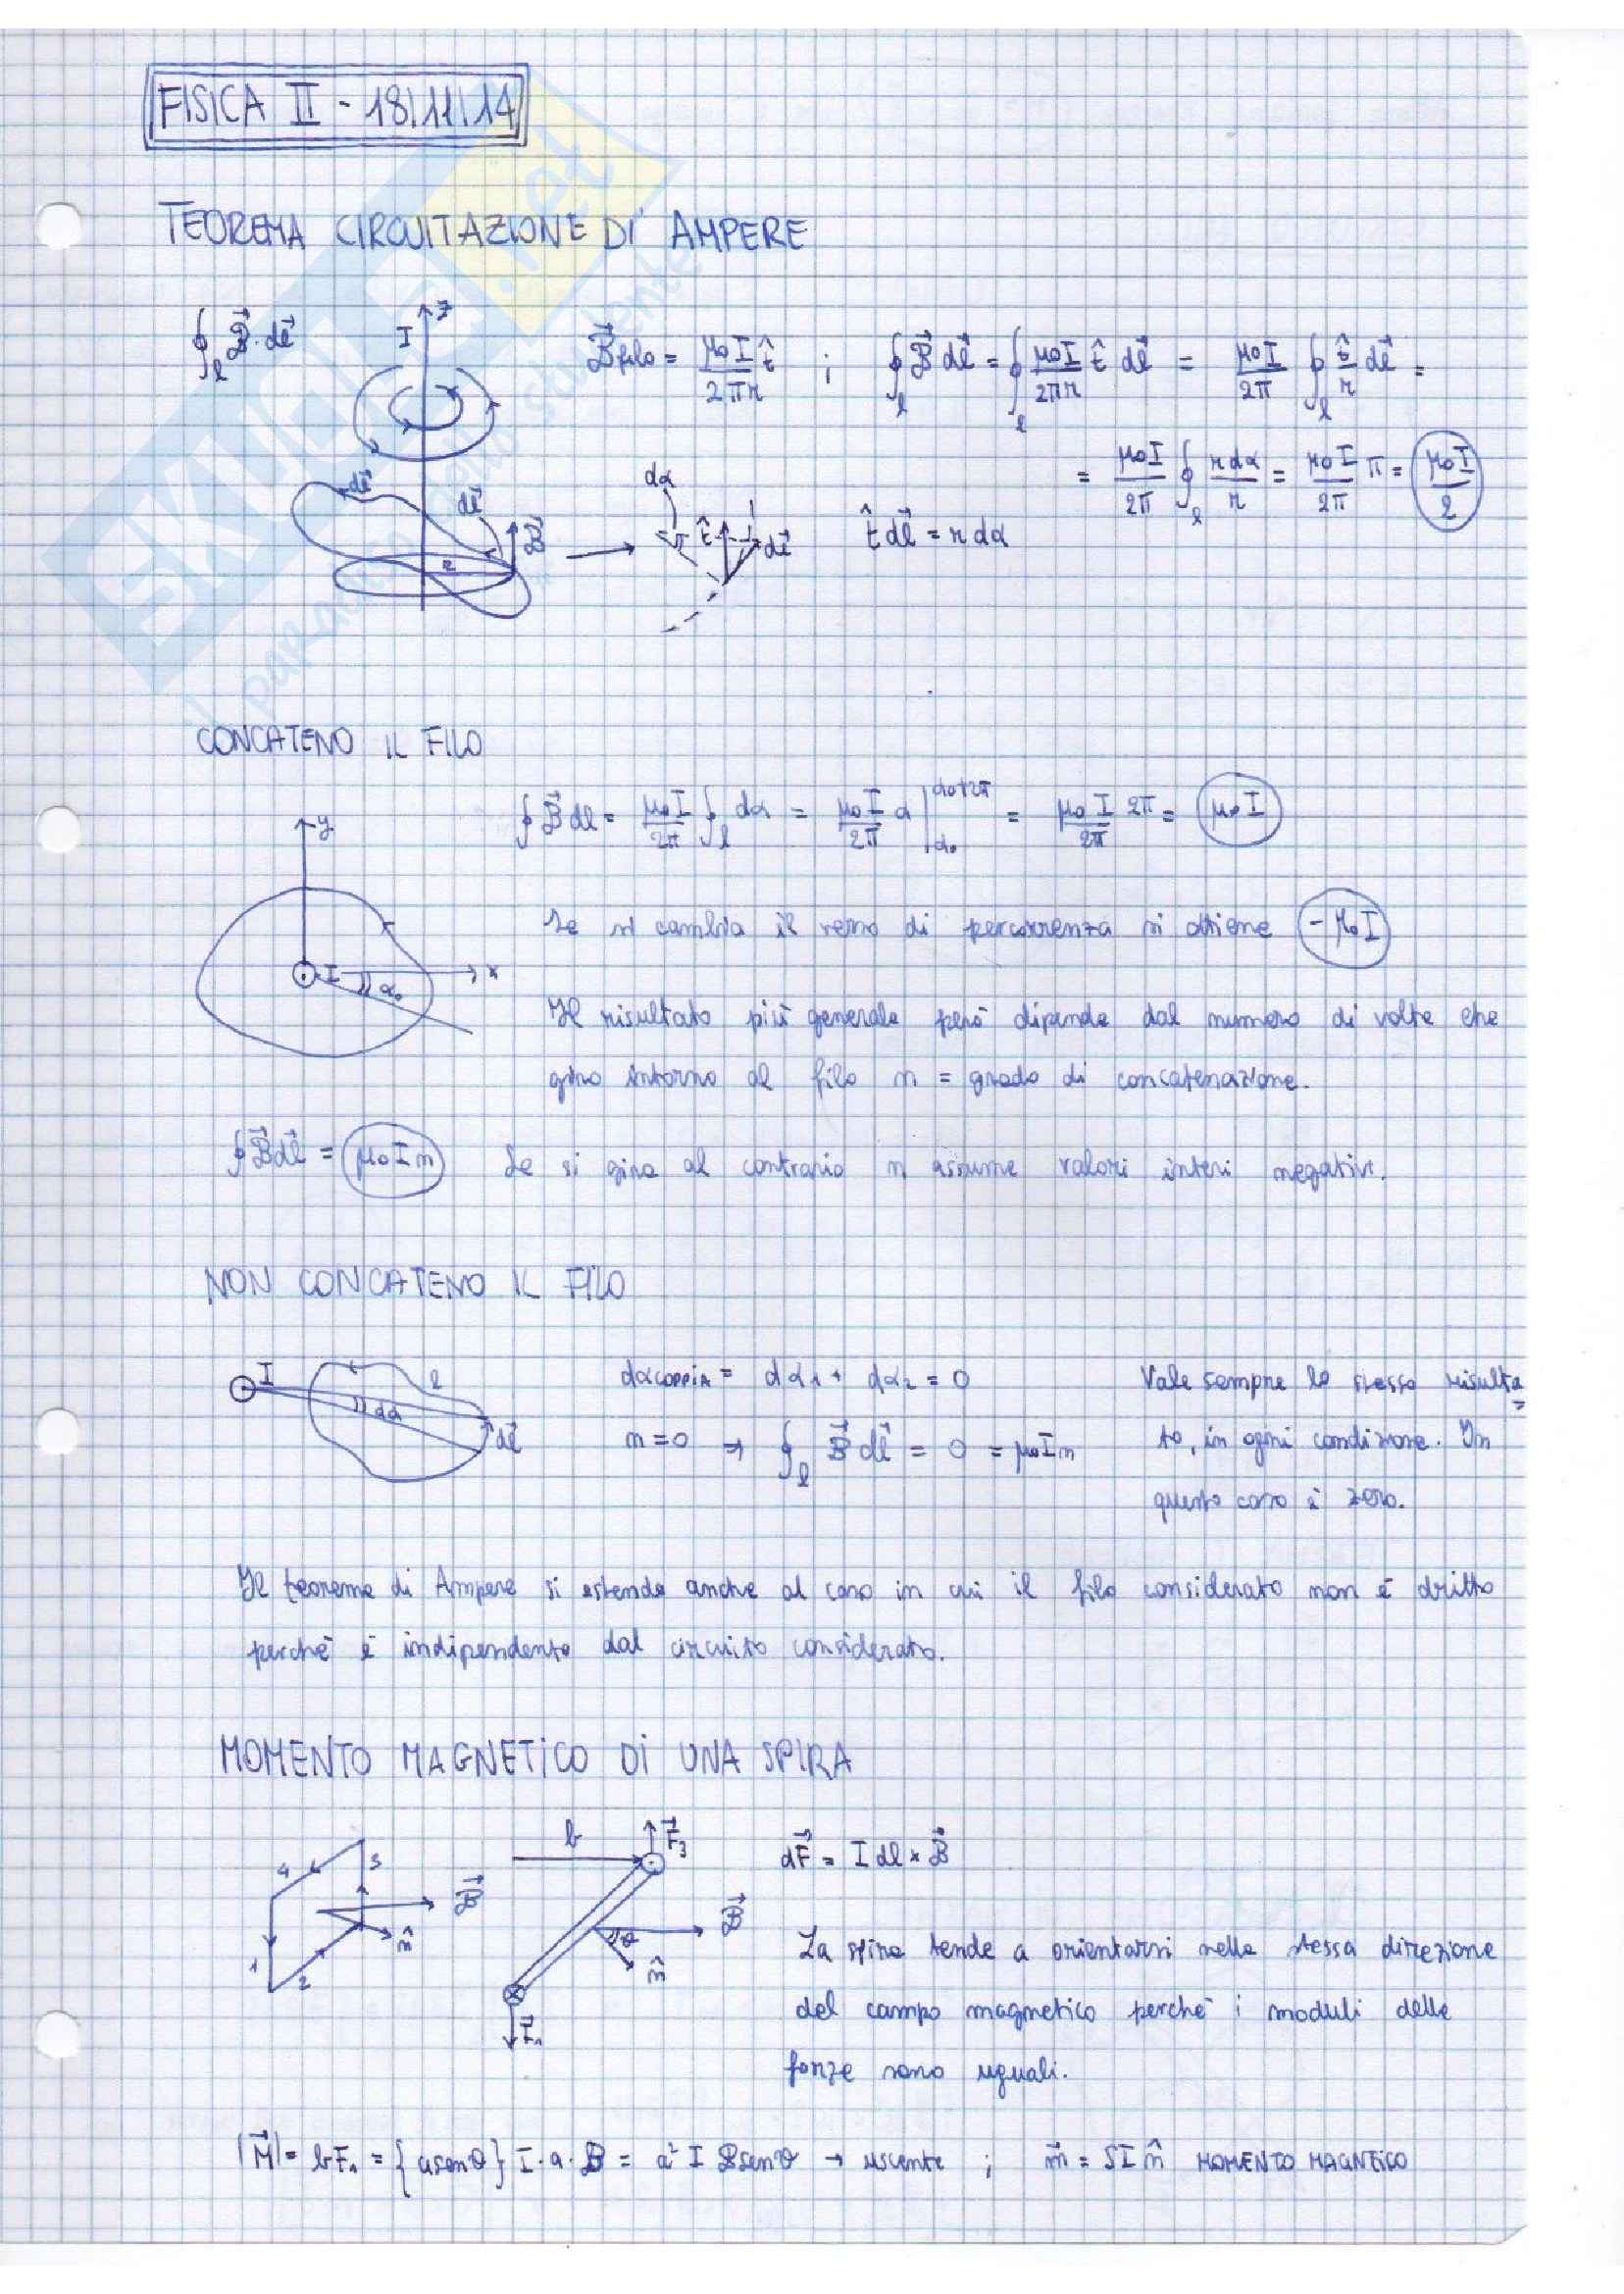 FISICA II - 18/11/14
TEOREMA CIRCUITAZIONE DI AMPERE
∮ₗ B⃗·dl⃗
I z
B⃗filo = μ₀I/2πr t̂ ; ∮ₗ B⃗ dl⃗ = ∮ₗ μ₀I/2πr t̂ dl⃗ = μ₀I/2π ∮ₗ t̂/r dl⃗ =
= μ₀I/2π ∮ₗ r dα/r = μ₀I/2π π = μ₀I/2
dl⃗ dl⃗ B⃗ r
dα t̂ dl⃗
t̂ dl⃗ = r dα
CONCATENO IL FILO
∮ B⃗ dl = μ₀I/2π ∮ₗ dα = μ₀I/2π α |α₀ α₀+2π = μ₀I/2π 2π = μ₀I
y I x α₀
Se si cambia il verso di percorrenza si ottiene -μ₀I
Il risultato più generale però dipende dal numero di volte che
giro intorno al filo n = grado di concatenazione.
∮ B⃗ dl⃗ = μ₀ I n Se si gira al contrario n assume valori interi negativi.
NON CONCATENO IL FILO
I l dα dl⃗
dαcoppia = dα₁ + dα₂ = 0
n = 0 ⇒ ∮ₗ B⃗ dl⃗ = 0 = μ₀ I n
Vale sempre lo stesso risulta=
to, in ogni condizione. In
questo caso è zero.
Il teorema di Ampere si estende anche al caso in cui il filo considerato non è dritto
perchè è indipendente dal circuito considerato.
MOMENTO MAGNETICO DI UNA SPIRA
4 3 1 2 B⃗ n̂
b F⃗₃ B⃗ θ n̂ F⃗₁
dF⃗ = I dl × B⃗
La spira tende a orientarsi nella stessa direzione
del campo magnetico perchè i moduli delle
forze sono uguali.
|M⃗| = bF₁ = {a senθ} I·a·B = a² I B senθ → uscente ; m⃗ = S I n̂ MOMENTO MAGNETICO
SKUOLA.net
il paradiso dello studente